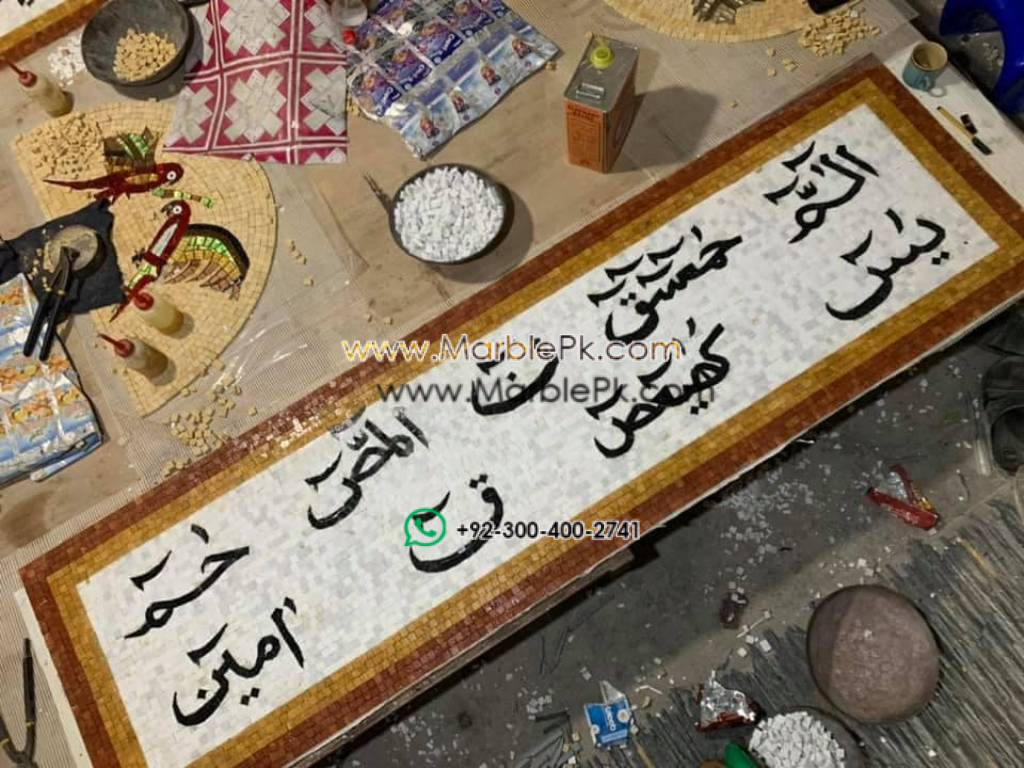 الٓمٓ
يٰسٓ
حٰمٓعٓسٓقٓ
كٓهٰيٰعٓصٓ
نٓ
قٓ
الٓمّٓصٓ
حٰمٓ
اٰمين
www.MarblePk.com
www.MarblePk.com
+92-300-400-2741